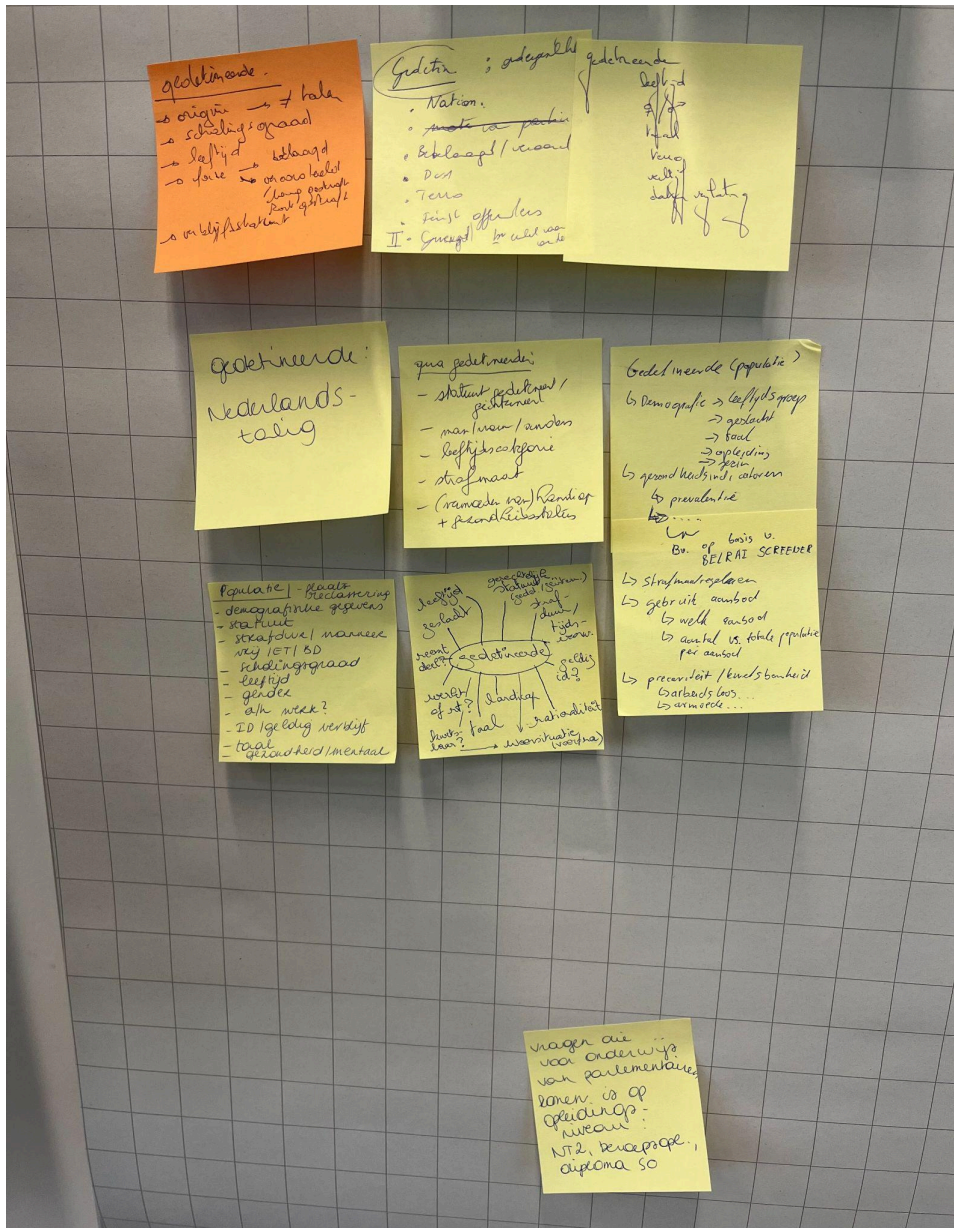 gedetineerde.
→ origine → ≠ talen
→ scholingsgraad
→ leeftijd
→ fase → beklaagd
→ veroordeeld
/ lang gestraft
kort gestraft
→ verblijfsstatuut
Gedetin
• Nation.
• Beklaagd / veroord
•
• Terro
First offenders
II •
gedetineerde
leeftijd
♀ / ♂
taal
gedetineerde:
Nederlands-
talig
qua gedetineerden:
- statuut gedetineert /
geïnterneert
- man / vrouw / anders
- leeftijdscategorie
- strafmaat
- (vermoeden van) handicap
+ gezondheidsstatus
Gedetineerde (populatie)
↳ Demografie → leeftijdsgroep
→ geslacht
→ taal
→ opleiding
→ gezin
↳ gezondheidsindicatoren
↳ prevalentie
↳ ....
Bv. op basis v.
BELRAI SCREENER
↳ strafmaatregelen
↳ gebruik aanbod
↳ welk aanbod
↳ aantal vs. totale populatie
per aanbod
↳ precariteit / kwetsbaarheid
↳ arbeidsloos...
↳ armoede...
Populatie - plaats
reclassering
- demografische gegevens
- statuut
- strafduur / wanneer
vrij / ET / BD
- scholingsgraad
- leeftijd
- gender
- a/h werk?
- ID / geldig verblijf
- taal
- gezondheid / mentaal
leeftijd
geslacht
neemt
deel?
werkt
of nt?
kwets-
baar?
taal
handicap
gedetineerde
gerechtelijk
statuut
straf-
duur /
tijds-
voorw.
geldig
id?
nationaliteit
woonsituatie
(voor/na)
vragen die
voor onderwijs
van parlementairen
komen is op
opleidings-
niveau:
NT2, beroepsopl.,
diploma SO